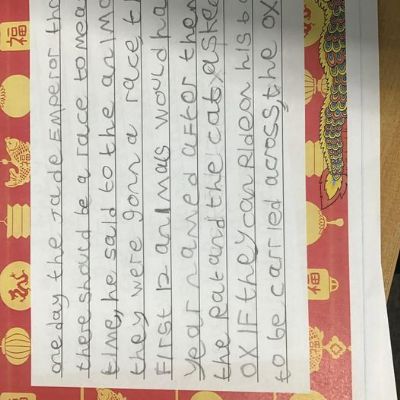 one day the Jade Emperor tho
there should be a race to mea
time, he said to the anima
they were gonn a race th
First 12 animals would ha
year named after them
the Rat and the cat asked
OX IF they can Ride on his b
to be carried across, the ox
福
福